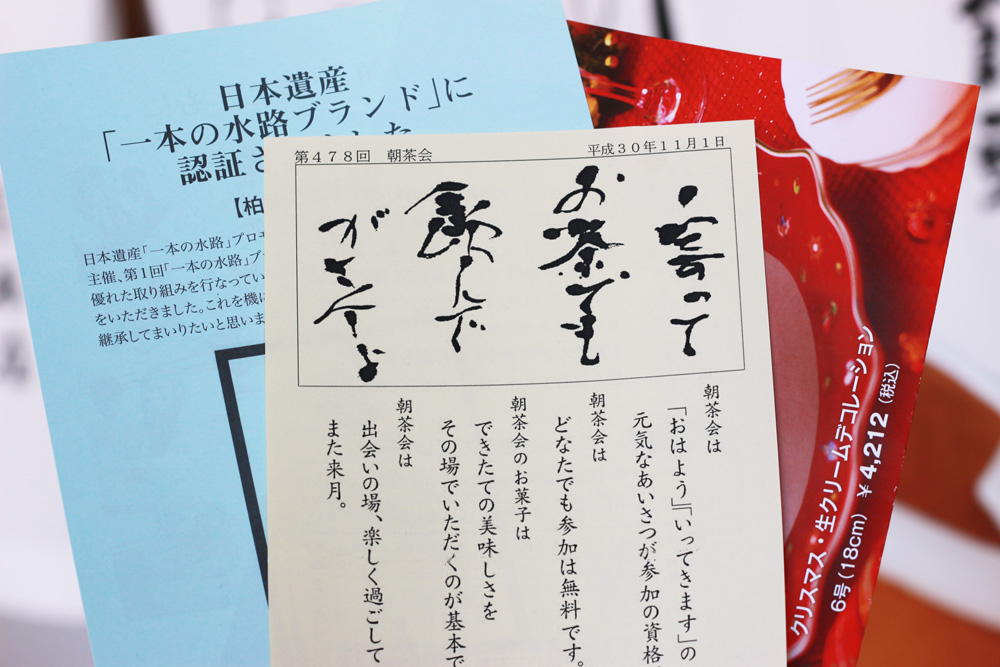 日本遺産
「一本の水路ブランド」に
認証さ
【柏
日本遺産「一本の水路」プロモ
主催、第1回「一本の水路」ブ
優れた取り組みを行なってい
をいただきました。これを機に
継承してまいりたいと思いま
第478回 朝茶会
平成30年11月1日
お茶でも
飲んで
がんせよ
朝茶会は
「おはよう」「いってきます」の
元気なあいさつが参加の資格
朝茶会は
どなたでも参加は無料です。
朝茶会のお菓子は
できたての美味しさを
その場でいただくのが基本で
朝茶会は
出会いの場、楽しく過ごして
また来月。
クリスマス・生クリームデコレーション
6号(18cm) ¥4,212(税込)